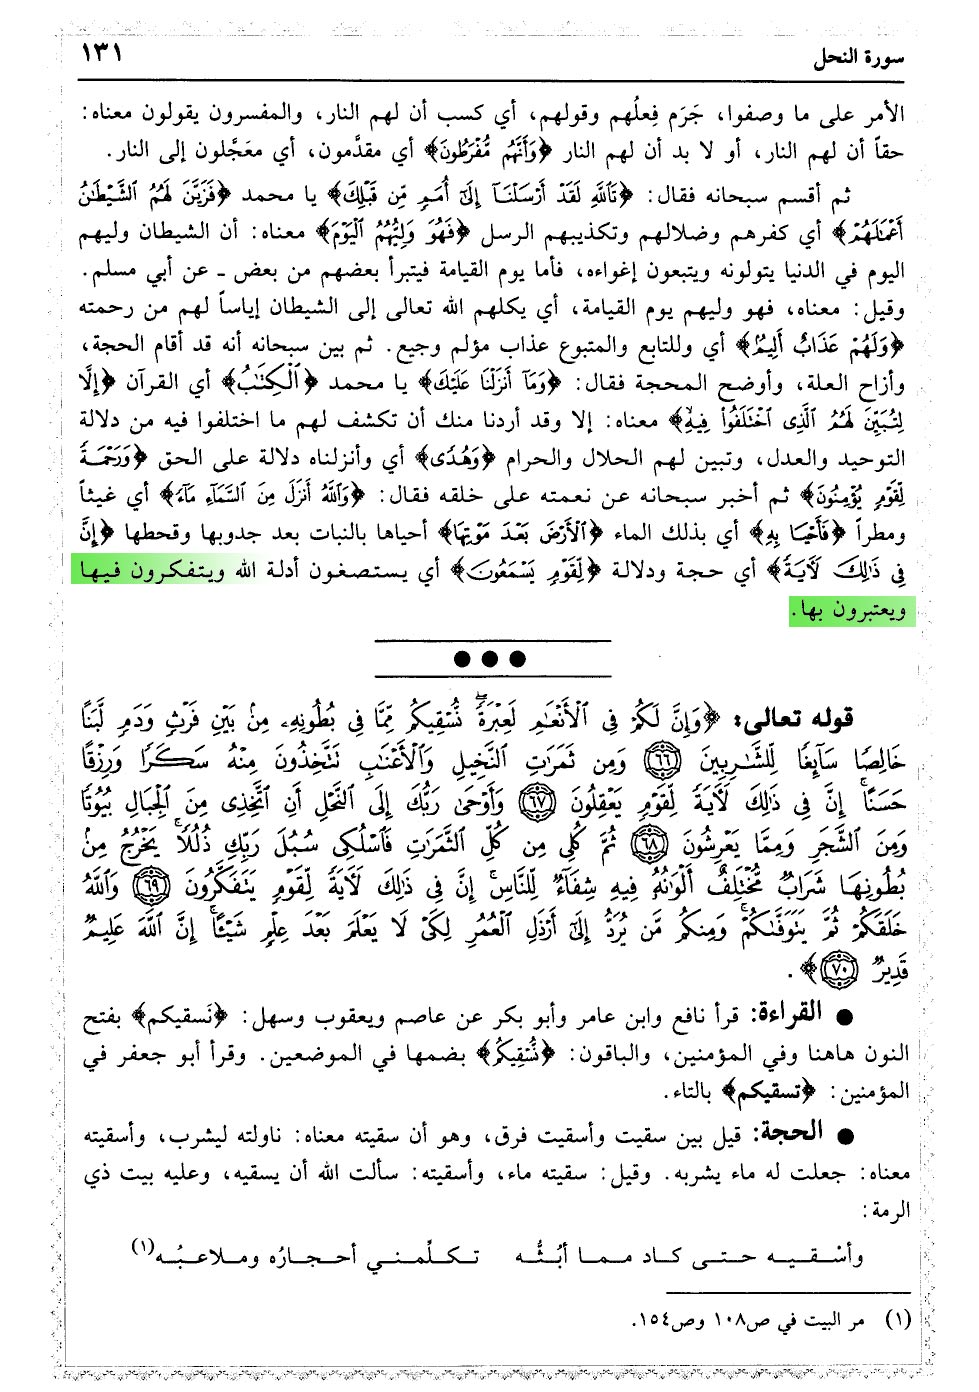 سورة النحل ١٣١
الأمر على ما وصفوا، جَرَم فِعلُهم وقولهم، أي كسب أن لهم النار، والمفسرون يقولون معناه:
حقاً أن لهم النار، أو لا بد أن لهم النار ﴿وَأَنَّهُم مُّفْرَطُونَ﴾ أي مقدَّمون، أي معَجَّلون إلى النار.
ثم أقسم سبحانه فقال: ﴿تَاللَّهِ لَقَدْ أَرْسَلْنَا إِلَىٰ أُمَمٍ مِّن قَبْلِكَ﴾ يا محمد ﴿فَزَيَّنَ لَهُمُ الشَّيْطَانُ
أَعْمَالَهُمْ﴾ أي كفرهم وضلالهم وتكذيبهم الرسل ﴿فَهُوَ وَلِيُّهُمُ الْيَوْمَ﴾ معناه: أن الشيطان وليهم
اليوم في الدنيا يتولونه ويتبعون إغواءه، فأما يوم القيامة فيتبرأ بعضهم من بعض ـ عن أبي مسلم.
وقيل: معناه، فهو وليهم يوم القيامة، أي يكلهم الله تعالى إلى الشيطان إياساً لهم من رحمته
﴿وَلَهُمْ عَذَابٌ أَلِيمٌ﴾ أي وللتابع والمتبوع عذاب مؤلم وجيع. ثم بين سبحانه أنه قد أقام الحجة،
وأزاح العلة، وأوضح المحجة فقال: ﴿وَمَا أَنزَلْنَا عَلَيْكَ﴾ يا محمد ﴿الْكِتَابَ﴾ أي القرآن ﴿إِلَّا
لِتُبَيِّنَ لَهُمُ الَّذِي اخْتَلَفُوا فِيهِ﴾ معناه: إلا وقد أردنا منك أن تكشف لهم ما اختلفوا فيه من دلالة
التوحيد والعدل، وتبين لهم الحلال والحرام ﴿وَهُدًى﴾ أي وأنزلناه دلالة على الحق ﴿وَرَحْمَةً
لِّقَوْمٍ يُؤْمِنُونَ﴾ ثم أخبر سبحانه عن نعمته على خلقه فقال: ﴿وَاللَّهُ أَنزَلَ مِنَ السَّمَاءِ مَاءً﴾ أي غيثاً
ومطراً ﴿فَأَحْيَا بِهِ﴾ أي بذلك الماء ﴿الْأَرْضَ بَعْدَ مَوْتِهَا﴾ أحياها بالنبات بعد جدوبها وقحطها ﴿إِنَّ
فِي ذَٰلِكَ لَآيَةً﴾ أي حجة ودلالة ﴿لِّقَوْمٍ يَسْمَعُونَ﴾ أي يستصغون أدلة الله ويتفكرون فيها
ويعتبرون بها.
قوله تعالى: ﴿وَإِنَّ لَكُمْ فِي الْأَنْعَامِ لَعِبْرَةً ۖ نُّسْقِيكُم مِّمَّا فِي بُطُونِهِ مِن بَيْنِ فَرْثٍ وَدَمٍ لَّبَنًا
خَالِصًا سَائِغًا لِّلشَّارِبِينَ ٦٦ وَمِن ثَمَرَاتِ النَّخِيلِ وَالْأَعْنَابِ تَتَّخِذُونَ مِنْهُ سَكَرًا وَرِزْقًا
حَسَنًا ۗ إِنَّ فِي ذَٰلِكَ لَآيَةً لِّقَوْمٍ يَعْقِلُونَ ٦٧ وَأَوْحَىٰ رَبُّكَ إِلَى النَّحْلِ أَنِ اتَّخِذِي مِنَ الْجِبَالِ بُيُوتًا
وَمِنَ الشَّجَرِ وَمِمَّا يَعْرِشُونَ ٦٨ ثُمَّ كُلِي مِن كُلِّ الثَّمَرَاتِ فَاسْلُكِي سُبُلَ رَبِّكِ ذُلُلًا ۚ يَخْرُجُ مِن
بُطُونِهَا شَرَابٌ مُّخْتَلِفٌ أَلْوَانُهُ فِيهِ شِفَاءٌ لِّلنَّاسِ ۗ إِنَّ فِي ذَٰلِكَ لَآيَةً لِّقَوْمٍ يَتَفَكَّرُونَ ٦٩ وَاللَّهُ
خَلَقَكُمْ ثُمَّ يَتَوَفَّاكُمْ ۚ وَمِنكُم مَّن يُرَدُّ إِلَىٰ أَرْذَلِ الْعُمُرِ لِكَيْ لَا يَعْلَمَ بَعْدَ عِلْمٍ شَيْئًا ۚ إِنَّ اللَّهَ عَلِيمٌ
قَدِيرٌ ٧٠﴾.
● القراءة: قرأ نافع وابن عامر وأبو بكر عن عاصم ويعقوب وسهل: ﴿نَسقيكم﴾ بفتح
النون هاهنا وفي المؤمنين، والباقون: ﴿نُّسْقِيكُم﴾ بضمها في الموضعين. وقرأ أبو جعفر في
المؤمنين: ﴿تسقيكم﴾ بالتاء.
● الحجة: قيل بين سقيت وأسقيت فرق، وهو أن سقيته معناه: ناولته ليشرب، وأسقيته
معناه: جعلت له ماء يشربه. وقيل: سقيته ماء، وأسقيته: سألت الله أن يسقيه، وعليه بيت ذي
الرمة:
وأسْقـيـه حـتـى كـاد مـمـا أبُثُّـه تـكـلِّمـنـي أحـجـارُه ومـلاعـبُـه(١)
(١) مر البيت في ص١٠٨ وص١٥٤.